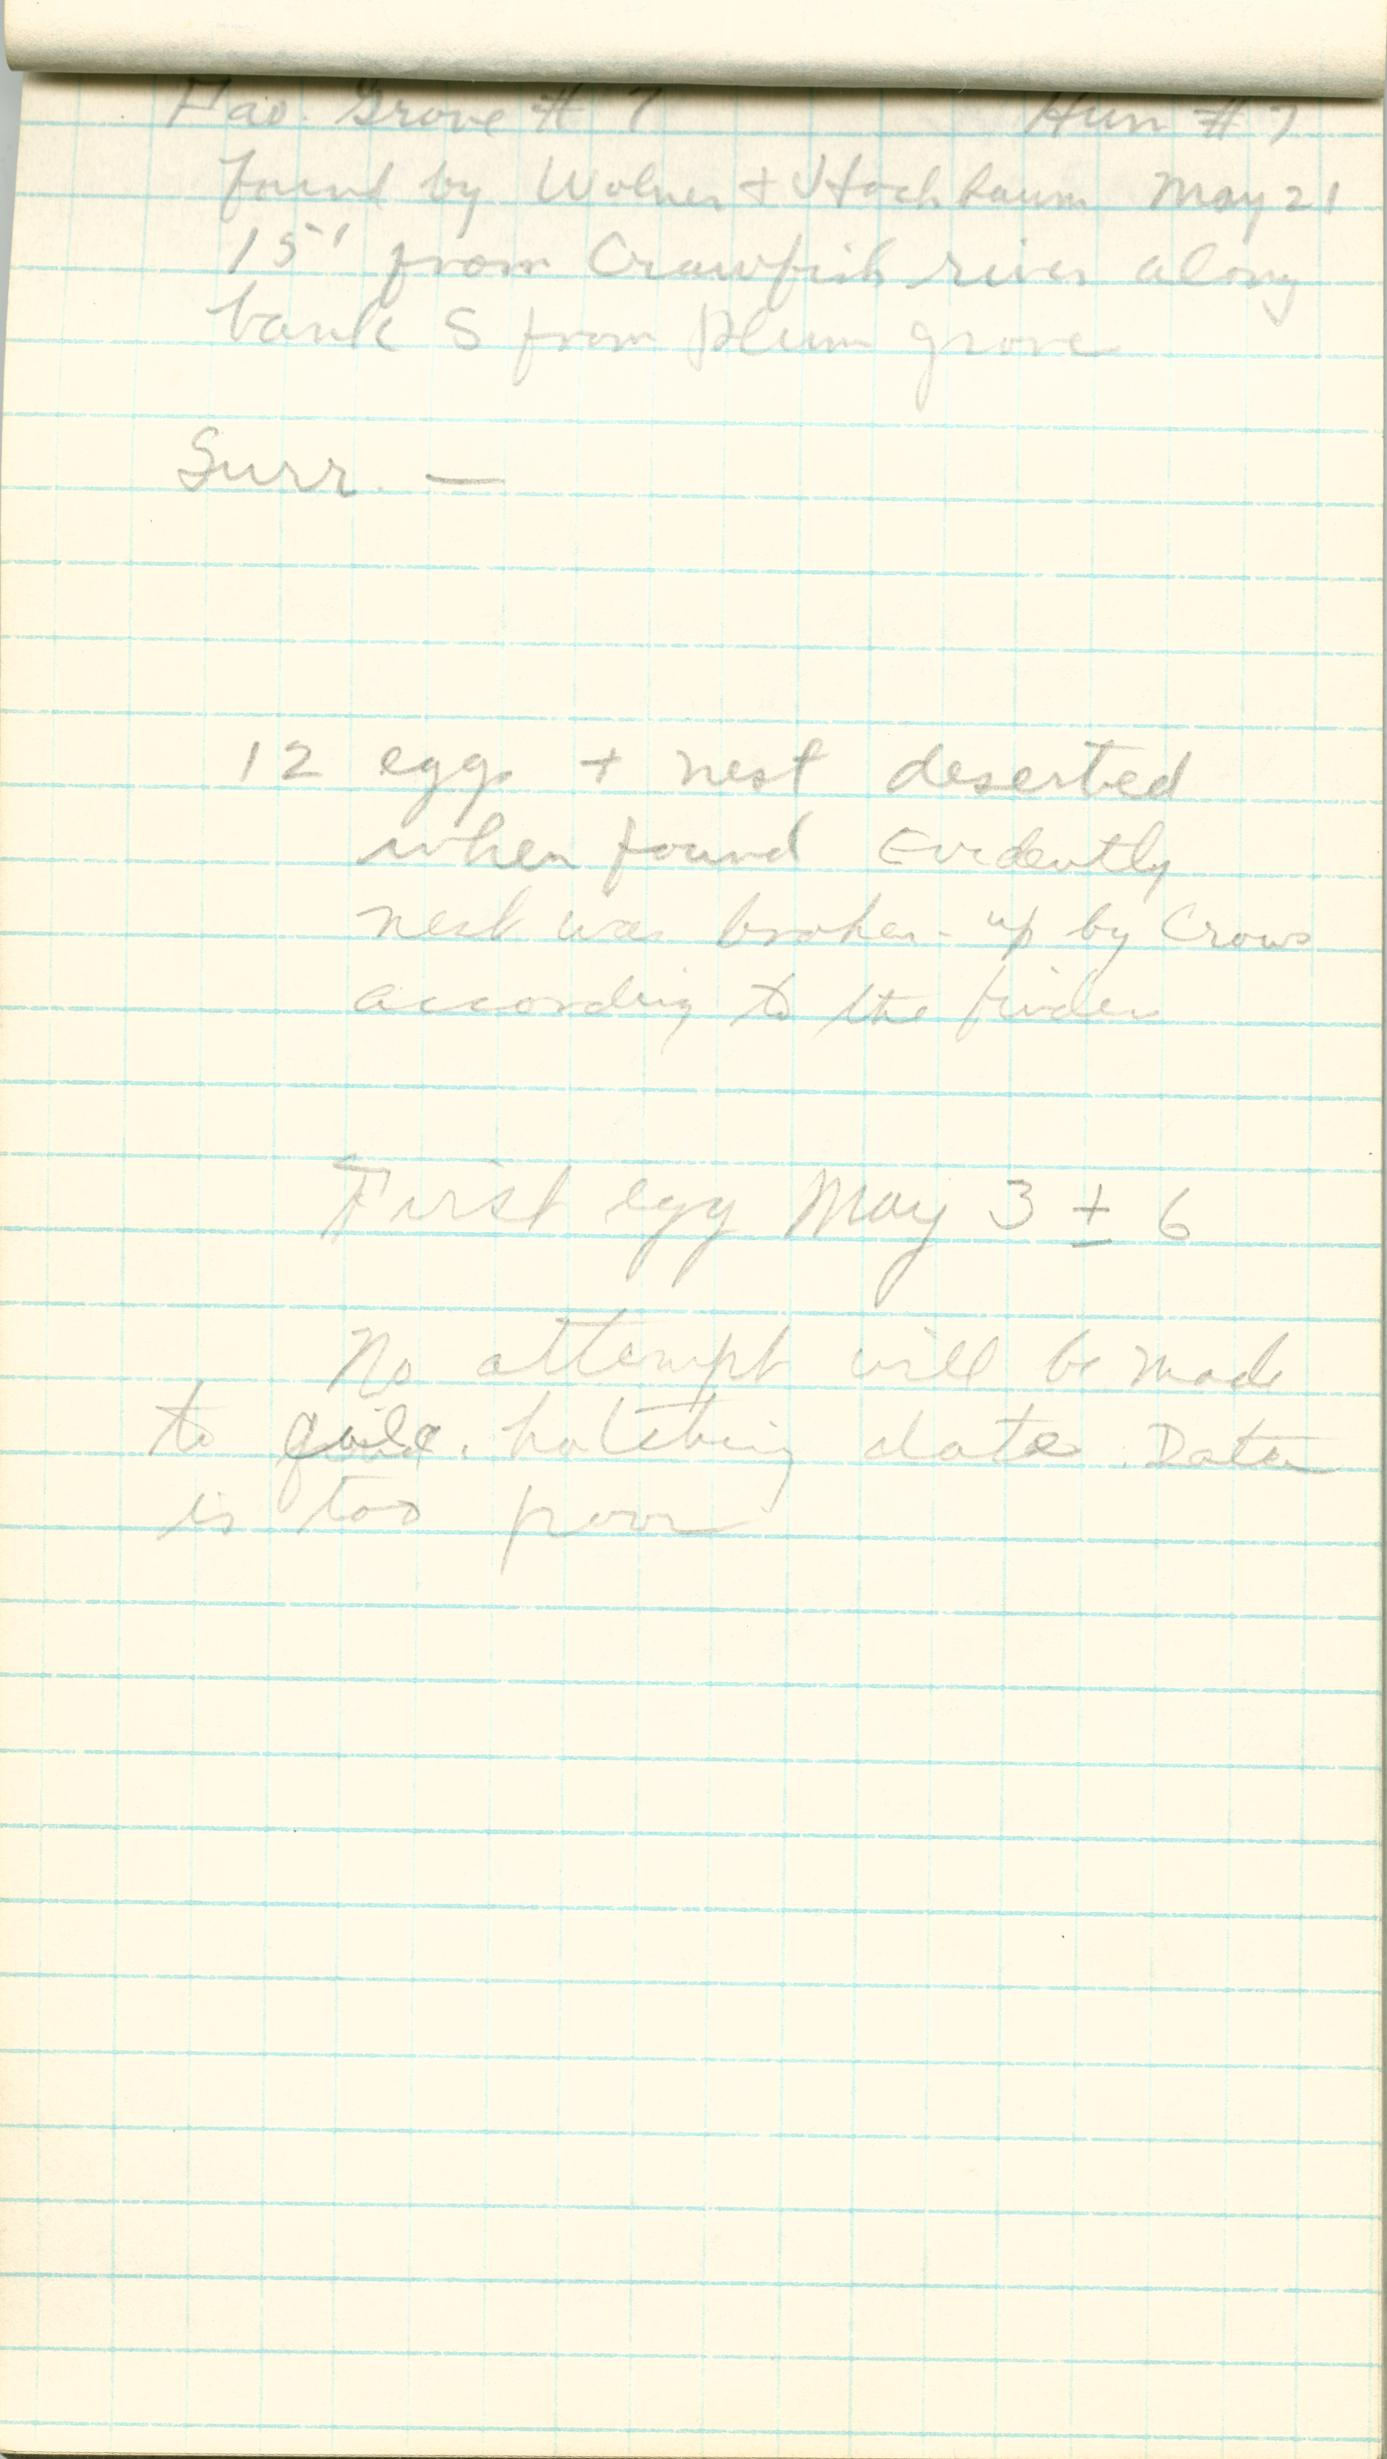 Grove # 7 Hun # 7
found by & Hochbaum May 21
15' from Crawfish river along
bank S from plum grove
Surr. —
12 eggs + nest deserted
when found Evidently
nest was broken-up by Crows
according to the finders
First egg May 3 ± 6
No attempt will be made
to hatching date. Data
is too poor